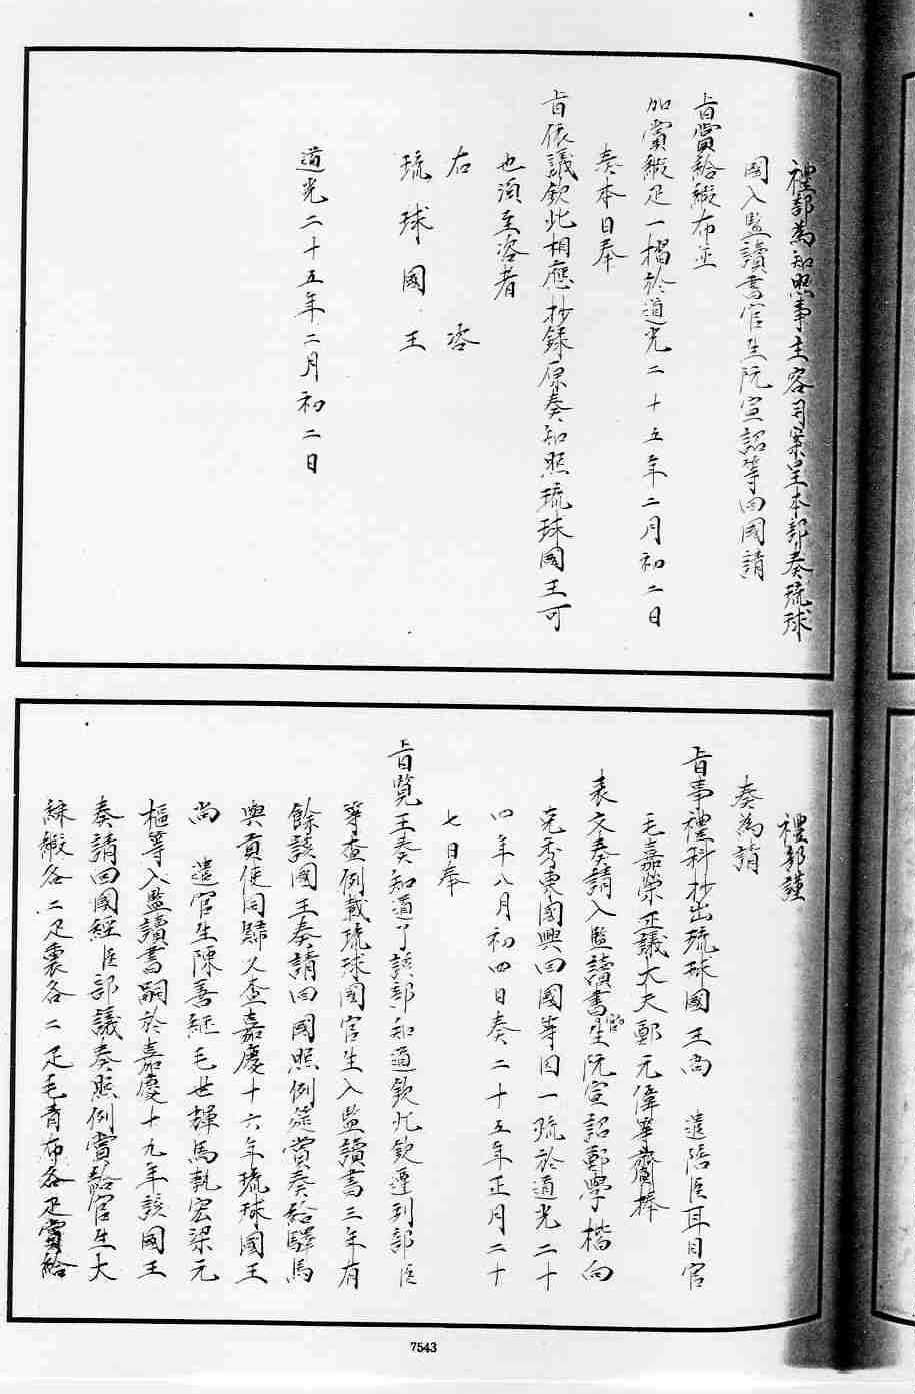 禮部為知照事主客司案呈本部奏琉球
國入監讀書官生阮宣詔等回國請
旨賞給緞布並
加賞緞疋一摺於道光二十五年二月初二日
奏本日奉
旨依議欽此相應抄錄原奏知照琉球國王可
也須至咨者
右咨
琉球國王
道光二十五年二月初二日
禮部謹
奏為請
旨事禮科抄出琉球國王尚 遣陪臣耳目官
毛嘉榮正議大夫鄭元偉等齎捧
表文奏請入監讀書官生阮宣詔鄭學楷向
克秀東國興回國等因一疏於道光二十
四年八月初四日奏二十五年正月二十
七日奉
旨覽王奏知道了該部知道欽此欽遵到部臣
等查例載琉球國官生入監讀書三年有
餘該國王奏請回國照例筵賞奏給驛馬
與貢使同歸又查嘉慶十六年琉球國王
尚 遣官生陳善繼毛世輝馬執宏梁元
樞等入監讀書嗣於嘉慶十九年該國王
奏請回國經臣部議奏照例賞給官生大
綵緞各二疋裏各二疋毛青布各疋賞給
7543